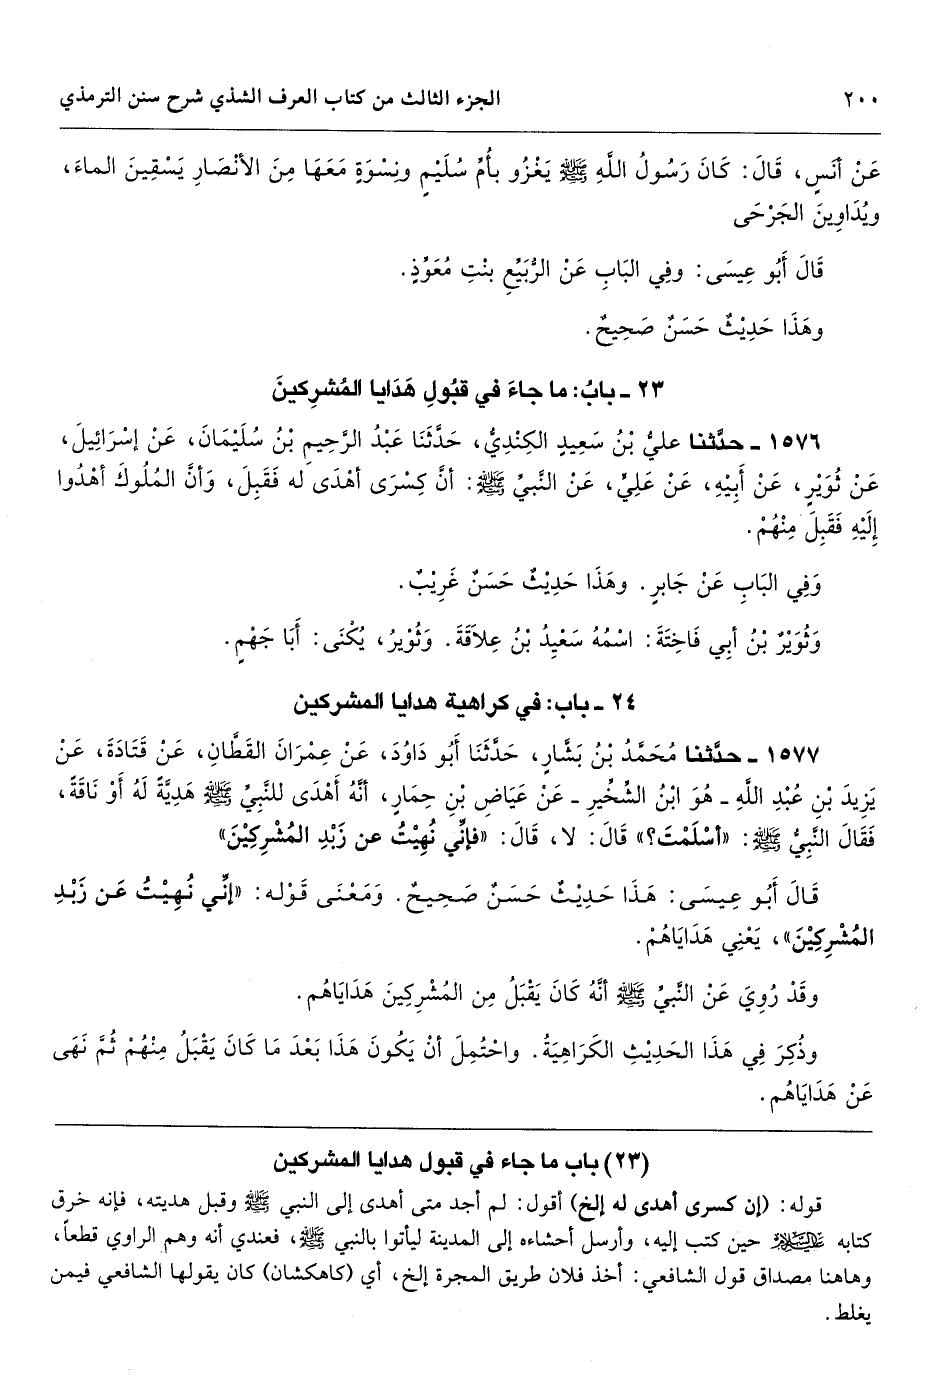 ٢٠٠ الجزء الثالث من كتاب العرف الشذي شرح سنن الترمذي
عَنْ أَنَسٍ، قَالَ: كَانَ رَسُولُ اللَّهِ ﷺ يَغْزُو بأُمِّ سُلَيْمٍ ونِسْوَةٍ مَعَهَا مِنَ الأَنْصَارِ يَسْقِينَ الماءَ،
ويُدَاوِينَ الجَرْحَى
قَالَ أَبُو عِيسَى: وفِي البَابِ عَنْ الرُّبَيِّعِ بنْتِ مُعَوِّذٍ.
وهَذَا حَدِيْثٌ حَسَنٌ صَحِيحٌ.
٢٣ ـ بابُ: ما جاءَ في قبُولِ هَدَايا المُشرِكينَ
١٥٧٦ ـ حدَّثنا عليُّ بْنُ سَعِيدٍ الكِنديُّ، حَدَّثَنَا عَبْدُ الرَّحِيمِ بْنُ سُلَيْمَانَ، عَنْ إسْرَائِيلَ،
عَنْ ثُوَيْرٍ، عَنْ أَبِيْهِ، عَنْ عَلِيٍّ، عَنْ النَّبيِّ ﷺ: أنَّ كِسْرَى أهْدَى له فَقَبِلَ، وَأنَّ المُلُوكَ أهْدُوا
إِلَيْهِ فَقَبِلَ مِنْهُمْ.
وَفِي البَابِ عَنْ جَابرٍ. وهَذَا حَدِيْثٌ حَسَنٌ غَرِيْبٌ.
وَثُوَيْرٌ بْنُ أبي فَاخِتَةَ: اسْمُهُ سَعِيْدُ بْنُ عِلاَقَةَ. وَثُوْيرُ، يُكْنَى: أَبَا جَهْمٍ.
٢٤ ـ باب: في كراهية هدايا المشركين
١٥٧٧ ـ حدَّثنا مُحَمَّدُ بْنُ بَشَّارٍ، حَدَّثَنَا أَبُو دَاوُدَ، عَنْ عِمْرَانَ القَطَّانِ، عَنْ قَتَادَةَ، عَنْ
يَزِيدَ بْنِ عُبْدِ اللَّهِ ـ هُوَ ابْنُ الشِّخِّيرِ ـ عَنْ عَيَاضِ بْنِ حِمَارٍ، أنَّهُ أَهْدَى للنَّبيِّ ﷺ هَدِيَّةً لَهُ أَوْ نَاقَةً،
فَقَالَ النَّبيُّ ﷺ: «أسْلَمْتَ؟» قَالَ: لا، قَالَ: «فإنِّي نُهِيْتُ عن زَبْدِ المُشْرِكِيْنَ»
قَالَ أَبُو عِيسَى: هَذَا حَدِيْثٌ حَسَنٌ صَحِيحٌ. وَمَعْنَى قَوْله: «إنِّي نُهِيْتُ عَن زَبْدِ
المُشْرِكِيْنَ»، يَعْنِي هَدَايَاهُمْ.
وقَدْ رُوِيَ عَنْ النَّبيِّ ﷺ أنَّهُ كَانَ يَقْبَلُ مِن المُشْرِكِينَ هَدَايَاهُم.
وذُكِرَ فِي هَذَا الحَدِيْثِ الكَرَاهِيَةُ. واحْتُمِلَ أنْ يَكُونَ هَذَا بَعْدَ مَا كَانَ يَقْبَلُ مِنْهُمْ ثُمَّ نَهَى
عَنْ هَدَايَاهُم.
(٢٣) باب ما جاء في قبول هدايا المشركين
قوله: (إن كسرى أهدى له إلخ) أقول: لم أجد متى أهدى إلى النبي ﷺ وقبل هديته، فإنه خرق
كتابه عليه السلام حين كتب إليه، وأرسل أحشاءه إلى المدينة ليأتوا بالنبي ﷺ، فعندي أنه وهم الراوي قطعاً،
وهاهنا مصداق قول الشافعي: أخذ فلان طريق المجرة إلخ، أي (كاهكشان) كان يقولها الشافعي فيمن
يغلط.